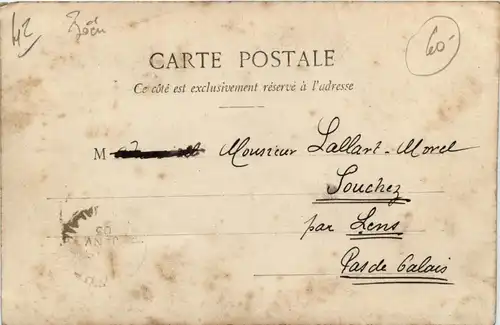 42
60
CARTE POSTALE
Ce côté est exclusivement réservé à l'adresse
M Monsieur Lallart-Morel
Souchez
par Lens
Pas de Calais